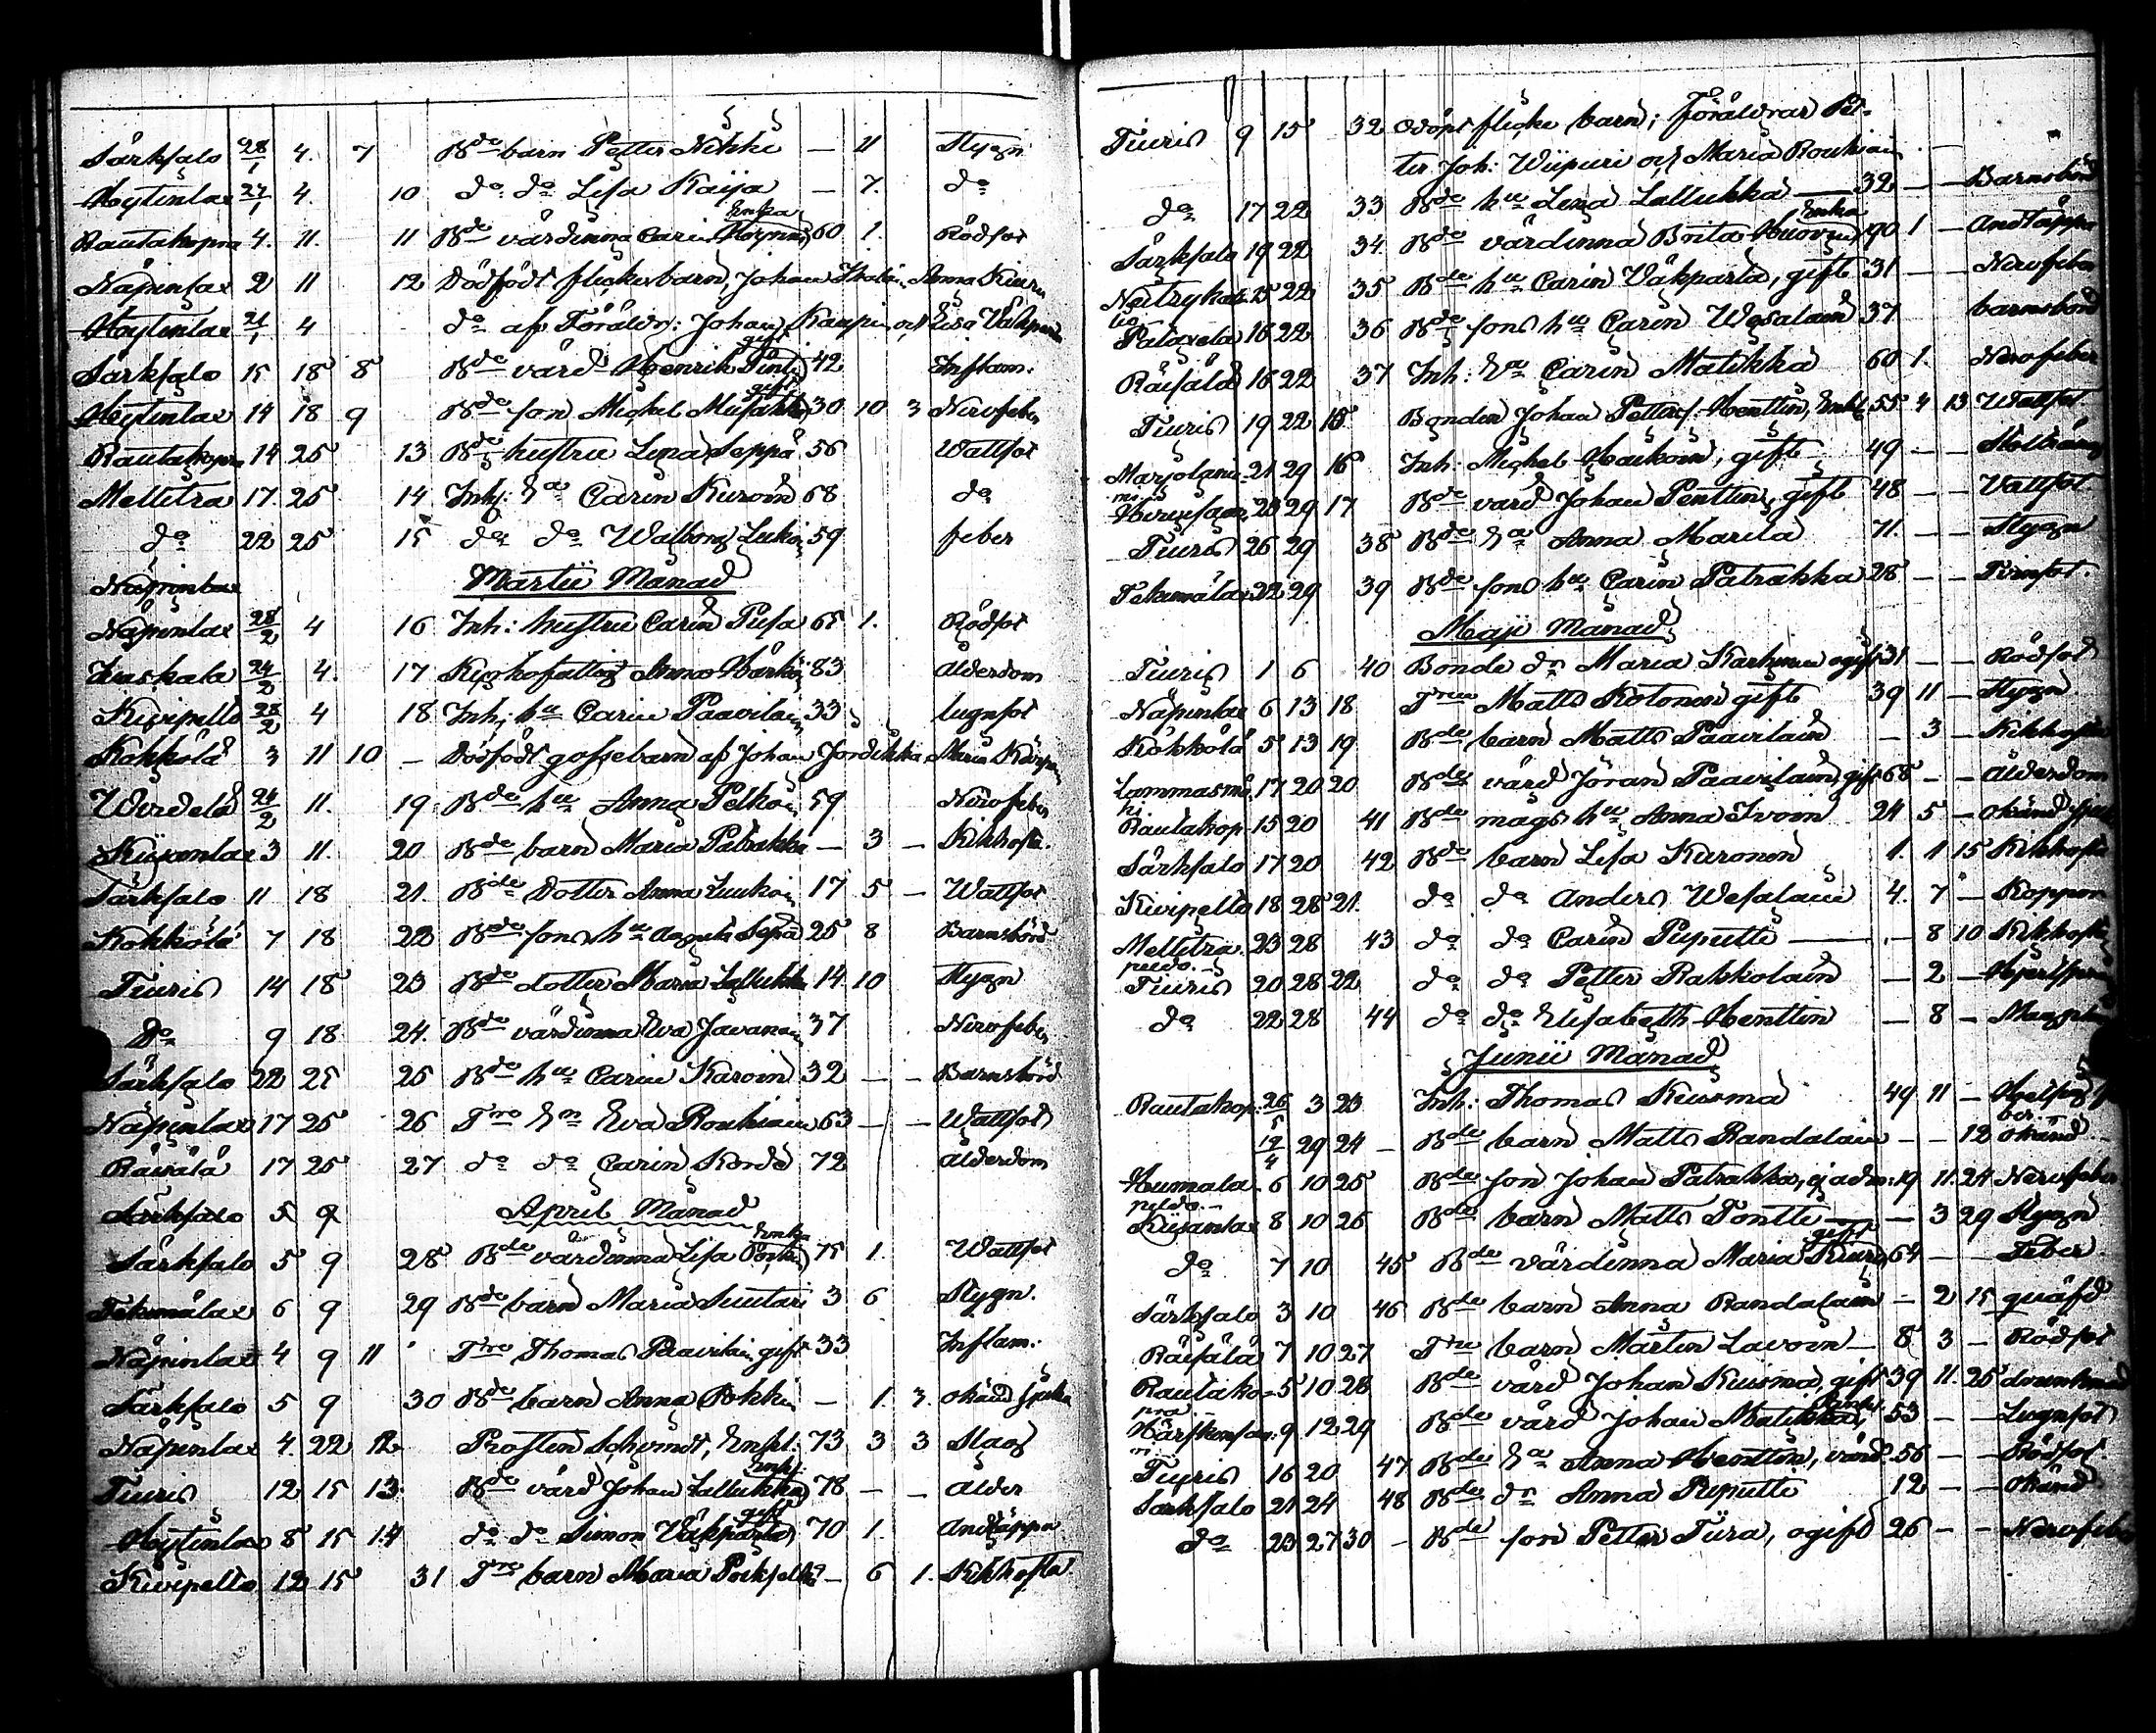 Särksalo 28/1 4. 7 Bde barn Petter Nikki — 11 Stygn
Höytinlax 27/1 4. 10 do do Lisa Kaija — 7. do
Rautakopra 4. 11. 11 Bde värdinna Carin Enka 60 1. Rödsot
Näpinlax 2 11 12 Dödfödt flickebarn, Johan Anna Kiuru
Höytinlax 21/1 4 do af Föräldr: Johan Kaupin och Lisa Väkparta
Särksalo 15 18 8 Bde värd Henrik gift 42 Inflam:
Höytinlax 14 18 9 Bde son Michel gift 30 10 3 Nervfeber
Rautakopra 14 25 13 Bde hustru Lena Seppä 56 Wattsot
Mellitra 17. 25 14 Inh: Ea Carin Kuroin 68 do
do 22 25 15 do do Walborg Lukin 59 feber
Näpinlax Martii Månad
Näpinlax 28/2 4 16 Inh: hustru Carin Pusa 65 1. Rödsot
24/2 4. 17 Anna 83 Ålderdom
Kivipelto 28/2 4 18 Inh: hu Carin Paavilain 33 lugnsot
Kökkölä 3 11 10 — Dödfödt gossebarn af Johan Jordikka Maria
24/2 11. 19 Bde hu Anna Pelkoin 59 Nervfeber
Kiisanlax 3 11. 20 Bde barn Maria Patrakka — 3 — Kikhosta.
Särksalo 11 18 21. Bde Dotter Anna Luukoin 17 5 — Wattsot
Kökkölä 7 18 22 Bde sons hu Agneta Sepä 25 8 Barnsbörd
Tiuris 14 18 23 Bde dotter Maria Lallukka 14. 10 Stygn
Do 9 18 24. Bde värdinna Eva Javanain 37 Nervfeber
Särksalo 22 25 25 Bde hu Carin Karvin 32 — — Barnsbörd
Näpinlax 17 25 26 Tre En Eva Rouhiain 63 — — Wattsot
Räisälä 17 25 27 do do Carin 72 Ålderdom
Särksalo 5 9 April Månad
Särksalo 5 9 28 Bde värdinna Lisa Enka 75 1. Wattsot
Tekumälax 6 9 29 Bde barn Maria Suutari 3 6 Stygn.
Näpinlax 4 9 11 Tre Thomas Paavilain gift 33 Inflam:
Särksalo 5 9 30 Bde barn Anna Pokkin — 1. 3. okänd sjukd
Näpinlax 4. 22 12 Prosten Schvindt, Enkl: 73 3 3 Slag
Tiuris 12 15 13. Bde värd Johan Lallukka Enkl: 78 — — Ålder
Höytinlax 8 15 14 do do Simon Väkparta gift 70 1. Andtäppa
Kivipelto 12 15 31 Tre barn Maria — 6 1. Kikhosta
Tiuris 9 15 32 Odöpt flicke barn; Föräldrar Pet-
ter Joh: Wiipuri och Maria Rouhiain
do 17 22 33 Bde hu Lena Lallukka — 32 — — Barnsbörd
Särksalo 19 22 34. Bde värdinna Brita Huovin Enka 90 1 — Andtäppa
15 22 35 Bde hu Carin Väkparta, gift 31 — — Nervfeber
16 22 36 Bde sons hu Carin Wesalain 37 barnsbörd
Räisälä 16 22 37 Inh: Ea Carin Matikka 60 1. Nervfeber
Tiuris 19 22 15 Bonden Johan Petters: Henttin, Enkl: 55 4 13 Wattsot
21 29 16 Inh: Michel Haikoin, gift 49 — —
Hirvisaari 23 29 17 Bde värd Johan Penttin, gift 48 — — Vattsot
Tiuris 26 29 38 Bde Ea Anna Marila 71. — — Stygn
Tekumälax 22 29 39 Bde sons hu Carin Patrakka 28 — —
Maji Månad
Tiuris 1 6 40 Bonde dr Maria Karhunen ogift 31 — — Rödsot
Näpinlax 6 13 18 Tre Matts Kotonen gift 39 11 — Stygn
Kökkölä 5 13 19 Bde barn Matts Paavilain — 3 — Kikhosta
Lammasmä 17 20 20 Bde värd Jöran Paavilain, gift 68 — — Ålderdom
ki.
Rautakop. 15 20 41 Bde mågs hu Anna Ivoin 24 5 — okänd sjukd
Särksalo 17 20 42 Bde barn Lisa Kuronen 1. 1 15 Kikhosta
Kivipelto 18 28 21. do do Anders Wesalain 4. 7 — Koppor
Mellitra 23 28 43 do do Carin Puputti — — 8 10 Kikhosta
Tiuris 20 28 22 do do Petter Rakkolain — 2 —
do 22 28 44 do do Elisabeth Henttin — 8 —
Junii Månad
Rautakop: 26/5 3 23 Inh: Thomas Kuisma 49 11 —
12/4 29 24 — Bde barn Matts Randalain — — 12 okänd
Humala 6 10 25 Bde son Johan Patrakka, ej adm: 19 11. 24 Nervfeber
peldo.
Kiisanlax 8 10 26 Bde barn Matts Pontti — — 3 29 Stygn
do 7 10 45 Bde värdinna Maria Kiuru gift 64 — — Feber
Särksalo 3 10 46 Bde barn Anna Randalain — 2 15 quäfd
Räisälä 7 10 27 Tre barn Martin Lavoin — 8 3 — Rödsot
Rautako- 5 10 28 Bde värd Johan Kuisma, gift 39 11. 25
pra
9. 12 29 Bde värd Johan Matikka, Enkl 53 — — Lugnsot
Tiuris 16 20 47 Bde Ea Anna Henttin, värd: 56 — — Rödsot
Särksalo 21 24 48 Bde dr Anna Puputti 12 — — okänd
do 23 27 30 — Bde son Petter Tiira, ogift 26 — — Nervfeber